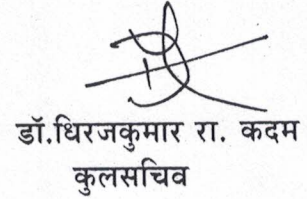 डॉ.धिरजकुमार रा. कदम
कुलसचिव